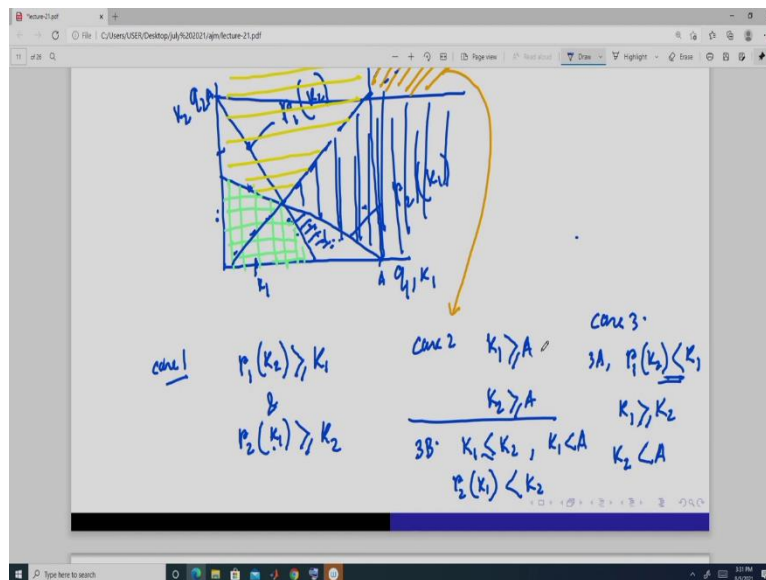 *lecture-21.pdf
File | C:/Users/USER/Desktop/july%202021/ajm/lecture-21.pdf
11 of 26
Page view | Read aloud | Draw Highlight Erase
K₂ q₂ A r₁(K₂)
r₂(K₁)
K₁ A q₁, K₁
case 1 r₁(K₂) ⩾ K₁
&
r₂(K₁) ⩾ K₂
case 2 K₁ ⩾ A
K₂ ⩾ A
3B. K₁ ≤ K₂, K₁ < A
r₂(K₁) < K₂
case 3.
3A, r₁(K₂) < K₁
K₁ ⩾ K₂
K₂ < A
Type here to search
3:31 PM